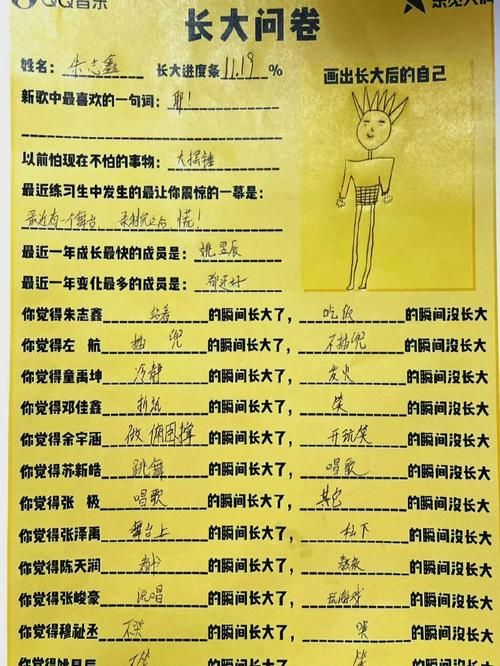 QQ音乐
长大问卷
姓名：朱志鑫 长大进度条 11.19 %
画出长大后的自己
新歌中最喜欢的一句词：耶！
以前怕现在不怕的事物：大摆锤
最近练习生中发生的最让你震惊的一幕是：
最近有一个舞台 慌！
最近一年成长最快的成员是：姚昱辰
最近一年变化最多的成员是：都还好
你觉得朱志鑫 站着 的瞬间长大了， 吃饭 的瞬间没长大
你觉得左 航 插兜 的瞬间长大了， 不插兜 的瞬间没长大
你觉得童禹坤 冷静 的瞬间长大了， 发火 的瞬间没长大
你觉得邓佳鑫 的瞬间长大了， 笑 的瞬间没长大
你觉得余宇涵 做俯卧撑 的瞬间长大了， 开玩笑 的瞬间没长大
你觉得苏新皓 跳舞 的瞬间长大了， 唱歌 的瞬间没长大
你觉得张 极 唱歌 的瞬间长大了， 其它 的瞬间没长大
你觉得张泽禹 舞台上 的瞬间长大了， 私下 的瞬间没长大
你觉得陈天润 看书 的瞬间长大了， 的瞬间没长大
你觉得张峻豪 说唱 的瞬间长大了， 玩游戏 的瞬间没长大
你觉得穆祉丞 不哭 的瞬间长大了， 哭 的瞬间没长大
你觉得姚昱辰 不笑 笑